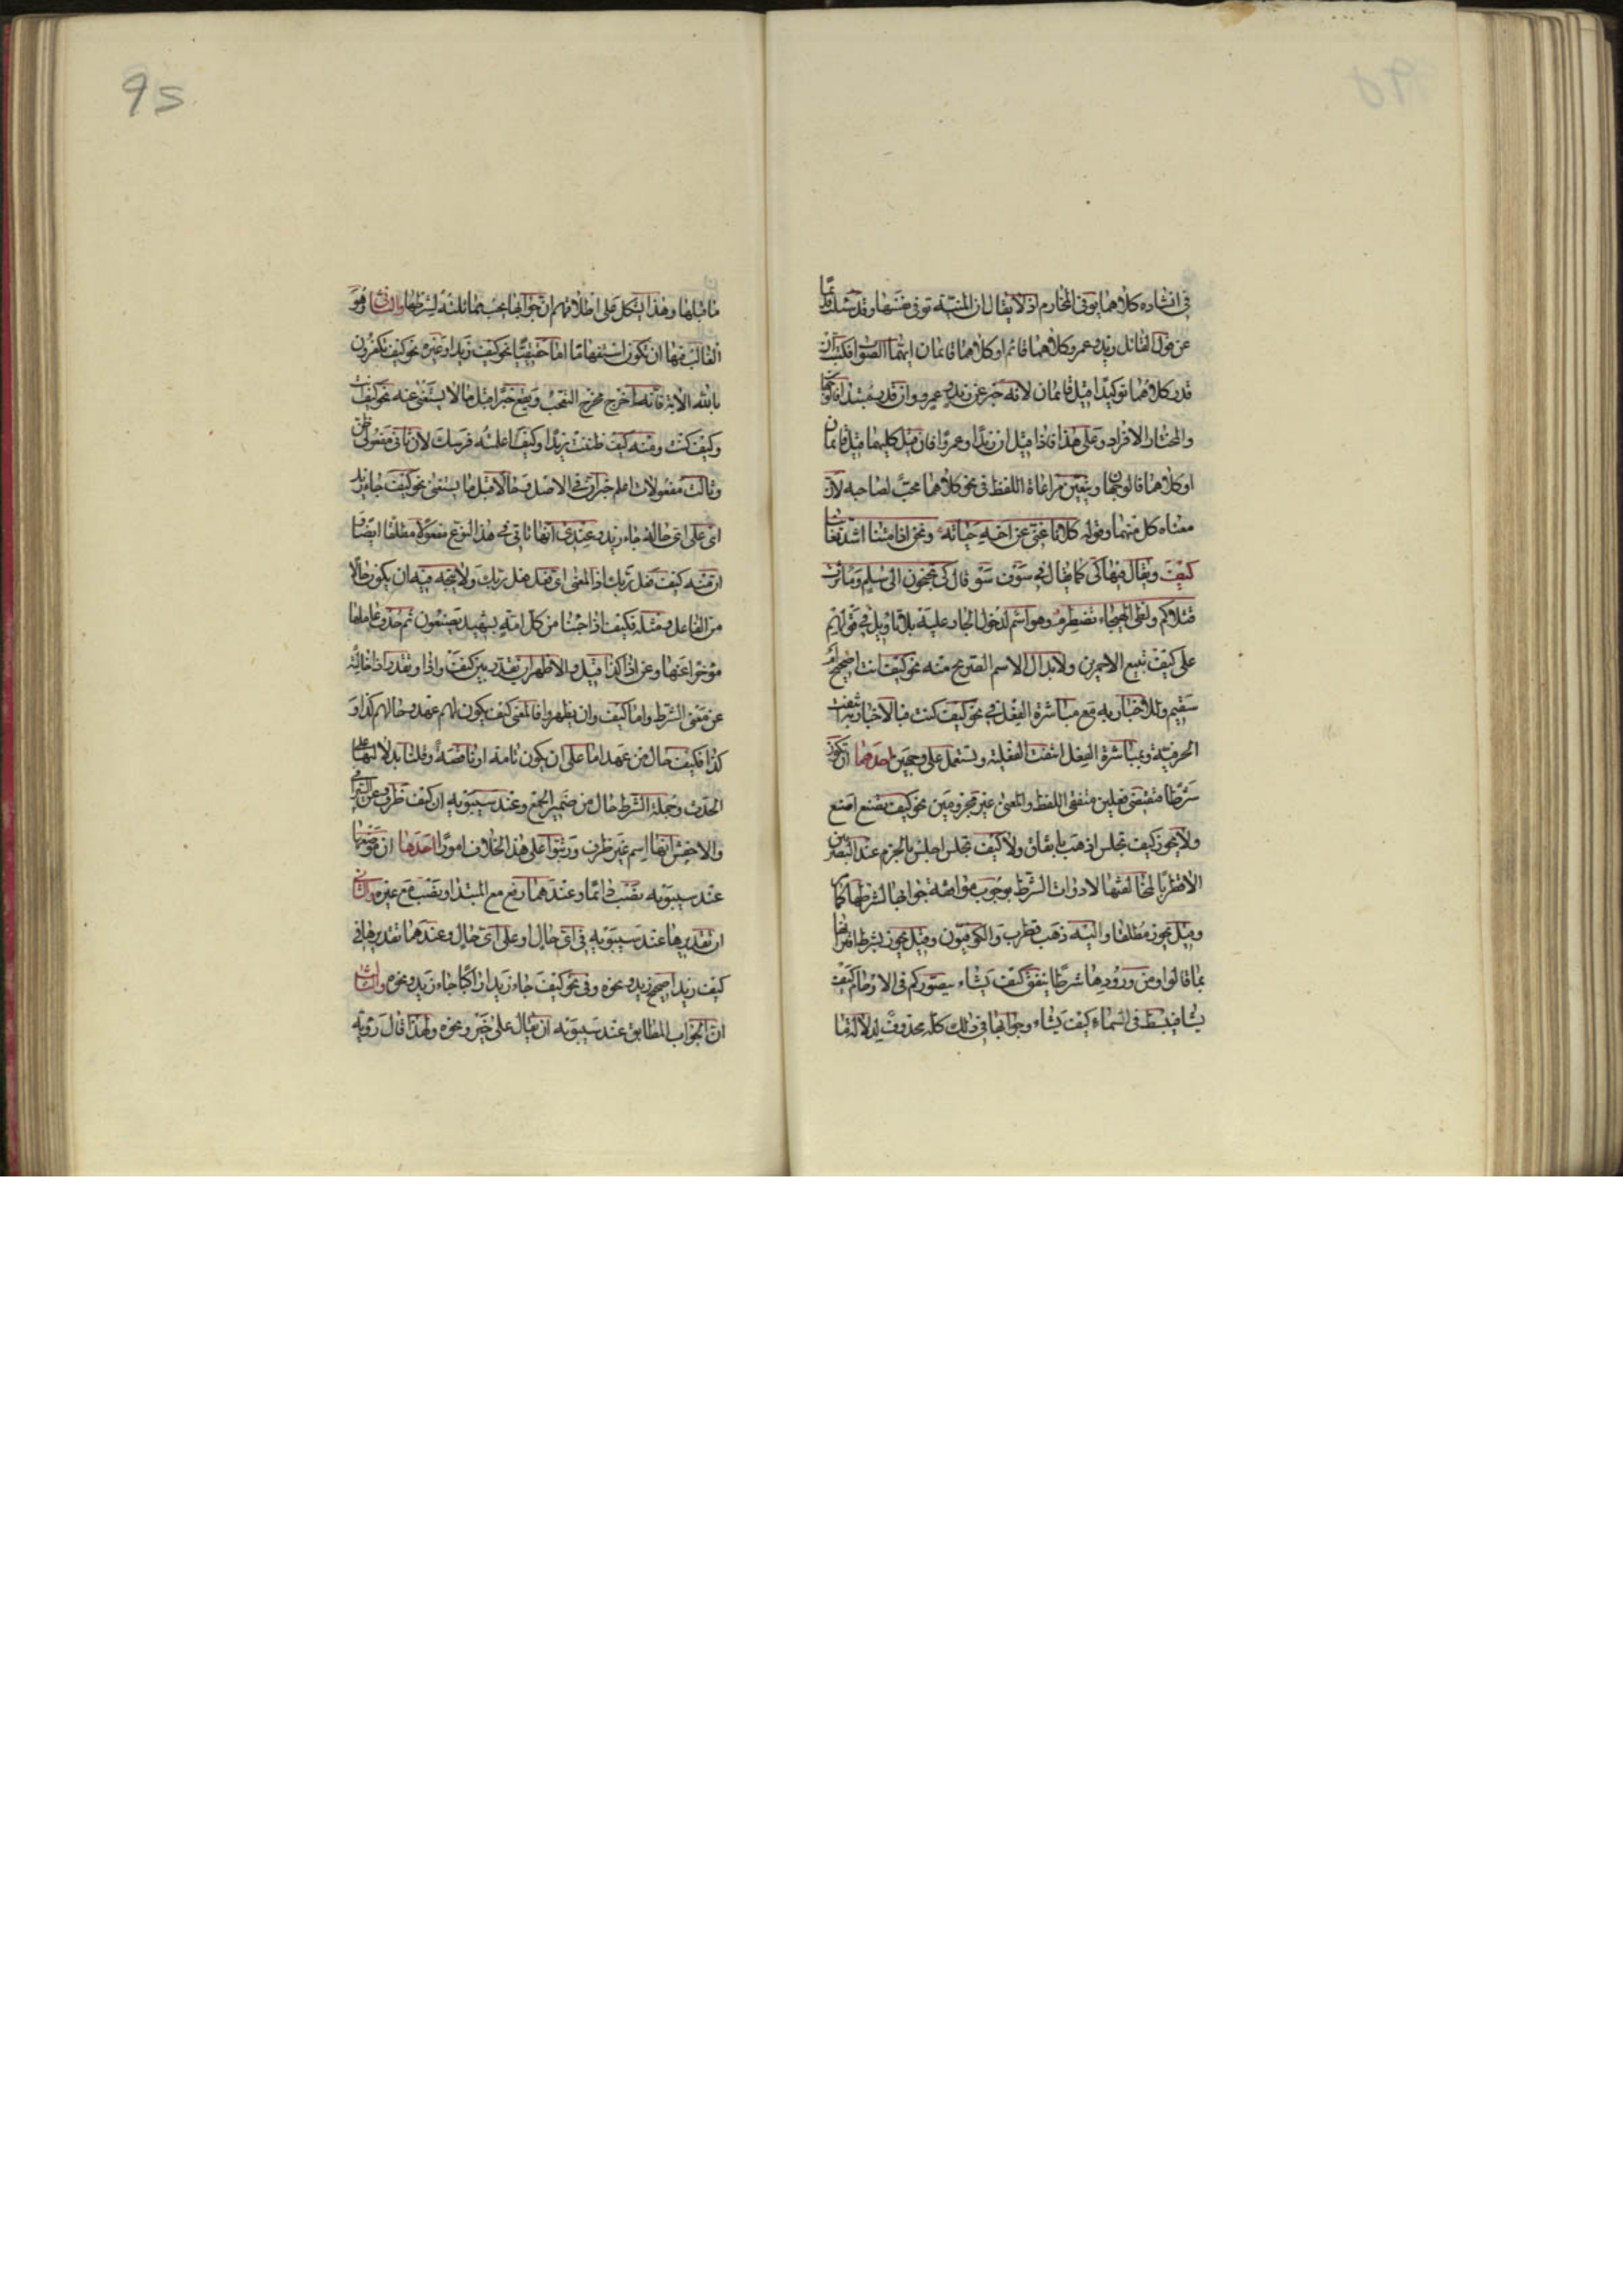 في انشاده كلاهما يوفي المخارم اذ لا يقال ان المنية توفي نفسها وقد سئلت قديما
عن قول القائل زيد وعمرو كلاهما قائم او كلاهما قائمان ايهما الصواب فكتبت ان
قدر كلاهما توكيدا قيل قائمان لانه خبر عن زيد وعمرو وان قدر مبتدا فالوجهان
والمختار الافراد وعلى هذا فاذا قيل ان زيدا وعمروا فان قيل كليهما قيل قائمان
او كلاهما فالوجهان ويتعين مراعاة اللفظ في نحو كلاهما محب لصاحبه لان
معناه كل منهما وقوله كلانا غني عن اخيه حياته ونحن اذا متنا اشد تغانيا
كيف ويقال فيها كي كما يقال في سوف سو قال كي تجنحون الى سلم وما ثئرت
قتلاكم ولظى الهيجاء تضطرم وهو اسم لدخول الجار عليه بلا تاويل في قولهم
على كيف تبيع الاحمرين ولابدال الاسم الصريح منه نحو كيف انت اصحيح ام
سقيم وللاخبار به مع مباشرة الفعل في نحو كيف كنت فبالاخبار به انتفت
الحرفية وبمباشرة الفعل انتفت الفعلية ويستعمل على وجهين احدهما ان تكون
شرطا فتقتضي فعلين متفقي اللفظ والمعنى غير مجزومين نحو كيف تصنع اصنع
ولا يجوز كيف تجلس اذهب باتفاق ولا كيف تجلس اجلس بالجزم عند البصريين
الا قطربا لمخالفتها لادوات الشرط بوجوب موافقة جوابها لشرطها كما مر
وقيل يجوز مطلقا واليه ذهب قطرب والكوفيون وقيل يجوز بشرط اقترانها
بما قالوا ومن ورودها شرطا ينفق كيف يشاء يصوركم في الارحام كيف
يشاء فيبسطه في السماء كيف يشاء وجوابها في ذلك كله محذوف لدلالة ما
ما قبلها وهذا يشكل على اطلاقهم ان جوابها يجب مماثلته لشرطها والثاني وهو
الغالب فيها ان تكون استفهاما اما حقيقيا نحو كيف زيد او غيره نحو كيف تكفرون
بالله الاية فانه اخرج مخرج التعجب وتقع خبرا قبل ما لا يستغنى عنه نحو كيف انت
وكيف كنت ومنه كيف ظننت زيدا وكيف اعلمته فرسك لان ثاني مفعولي ظن
وثالث مفعولات اعلم خبران في الاصل وحالا قبل ما يستغنى نحو كيف جاء زيد
اي على اي حالة جاء زيد وعندي انها تاتي في هذا النوع مفعولا مطلقا ايضا و
ان منه كيف فعل ربك اذ المعنى اي فعل فعل ربك ولا يتجه فيه ان يكون حالا
من الفاعل ومثله فكيف اذا جئنا من كل امة بشهيد يصنعون ثم حذف عاملها
مؤخرا عنها وعن اذا كذا قيل والاظهر ان يقدر بين كيف واذا وتقدر اذا خالية
عن معنى الشرط واما كيف وان يظهروا فالمعنى كيف يكون لهم عهد وحالهم كذا و
كذا فكيف حال من عهد اما على ان يكون تامة او ناقصة وقلنا بدلالتها على
الحدث وجملة الشرط حال من ضمير الجمع وعند سيبويه ان كيف ظرف وعن السيرافي
والاخفش انها اسم غير ظرف ورتبوا على هذا الخلاف امورا احدها ان موضعها
عند سيبويه نصب دائما وعندهما رفع مع المبتدا ونصب مع غيره والثاني
ان تقديرها عند سيبويه في اي حال او على اي حال وعندهما تقديرها في
كيف زيد اصحيح زيد ونحوه وفي نحو كيف جاء زيد اراكبا جاء زيد ونحوه والثالث
ان الجواب المطابق عند سيبويه ان يقال على خير ونحوه ولهذا قال رؤبة
95